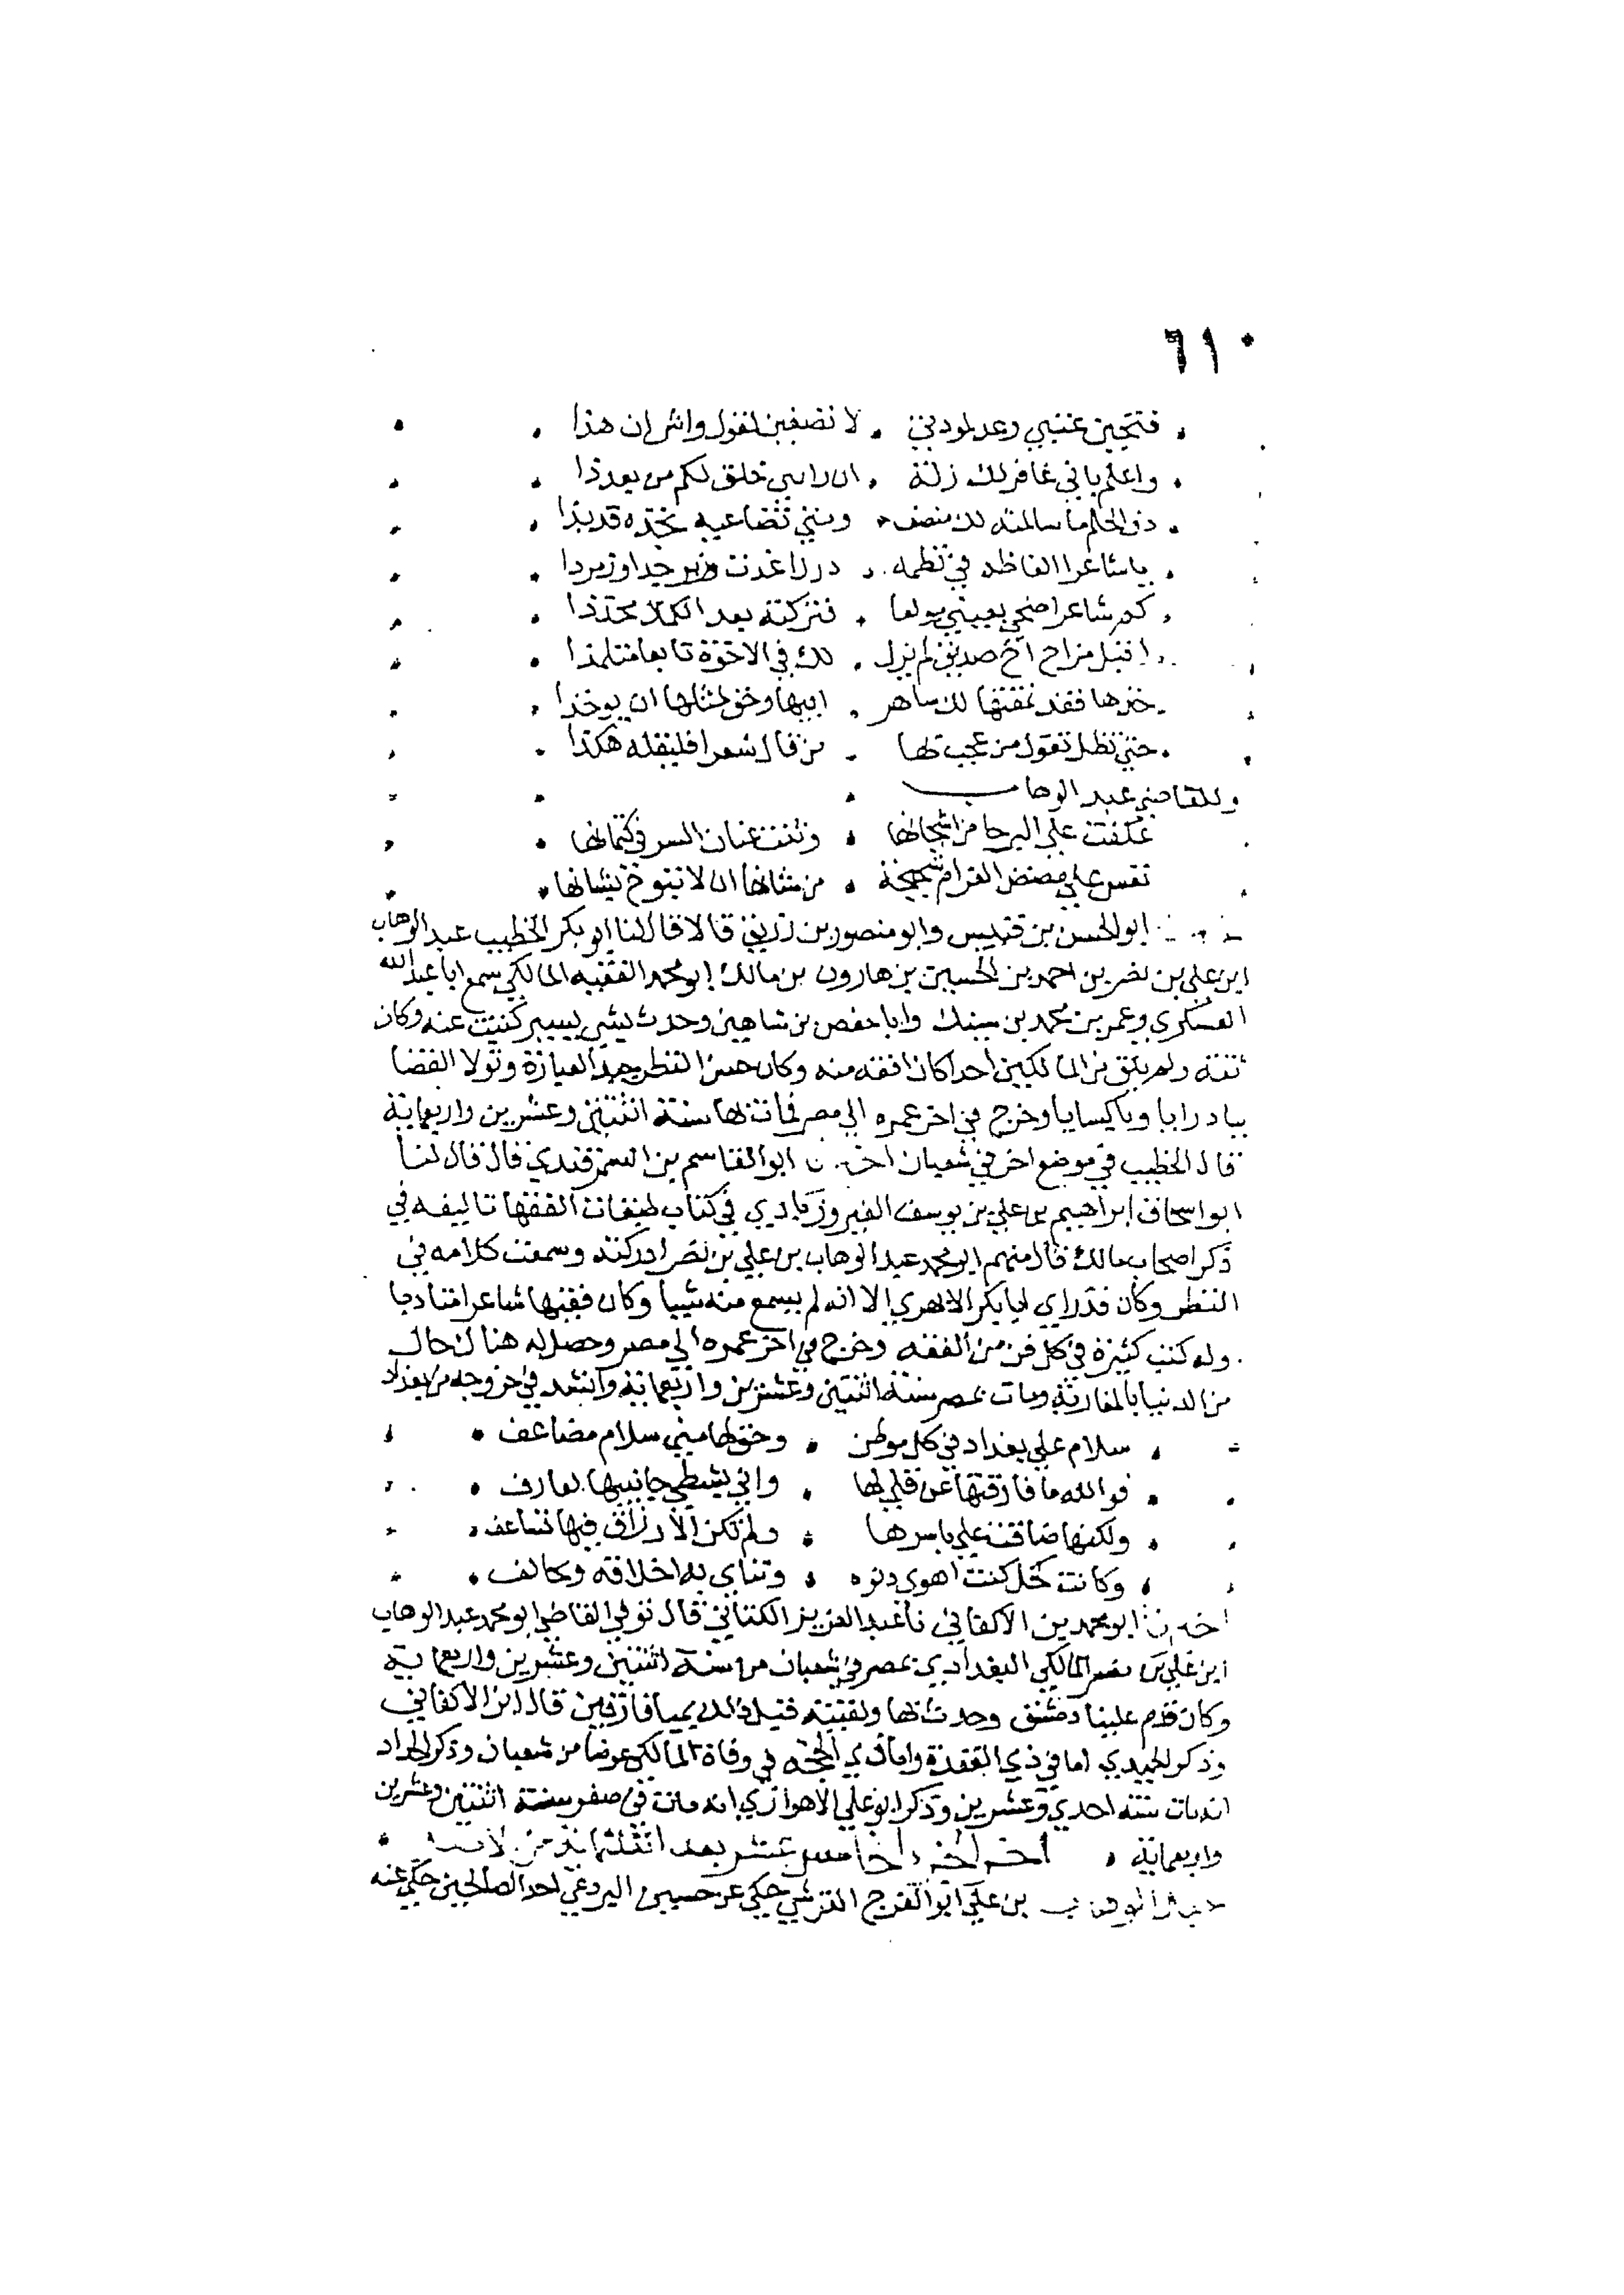 ٦١٠
لا تضفين لقول واش ان هذا
واعلم باني غافر لك زلة ان راسي خلق لكم من بعد ذا
ذو الحلم ما سالمته لك منصف
يا شاعرا الفاظه في نظمه دررا غدت وزبرجدا وزمردا
كم شاعر اضحى فتركته بعد
اقبل مزاح اخ صديق لم يزل لك في الاخوة تابعا متلمذا
خذها فقد نمقتها لك ساهر ابيها وحق لمثلها ان يوخذا
حتى تظل تقول من عجب لها من قال شعرا فليقله هكذا
وللقاضي عبد الوهاب
عكفت على البرحا من اشجانها وثنت عنان السر في كتمانها
نفس على مضض الغرام شحيحة من شانها ان لا تبوح بشانها
ابو الحسن بن قبيس وابو منصور بن زريق قالا قال لنا ابو بكر الخطيب عبد الوهاب
ابن علي بن نصر بن احمد بن الحسين بن هارون بن مالك ابو محمد الفقيه المالكي سمع ابا عبد الله
العسكري وعمر بن محمد بن سبنك وابا حفص بن شاهين وحدث بشي يسير كتبت عنه وكان
ثقة ولم يلق من المالكيين احدا كان افقه منه وكان حسن النظر جيد العبارة وتولا القضا
ببادرايا وباكسايا وخرج في اخر عمره الى مصر فمات بها سنة اثنتين وعشرين واربعماية
قال الخطيب في موضع اخر في شعبان ابو القاسم بن السمرقندي قال قال لنا
ابو اسحاق ابراهيم بن علي بن يوسف الفيروزبادي في كتاب طبقات الفقها تاليفه في
ذكر اصحاب مالك قال منهم ابو محمد عبد الوهاب بن علي بن نصر ادركته وسمعت كلامه في
النظر وكان قد راى ابا بكر الابهري الا انه لم يسمع منه شيا وكان فقيها شاعرا متادبا
وله كتب كثيرة في كل فن من الفقه وخرج في اخر عمره الى مصر وحصل له هناك حال
من الدنيا بالمغاربة ومات بمصر سنة اثنتين وعشرين واربعماية وانشد في خروجه من بغداد
سلام علي بغداد في كل موطن وحق لها مني سلام مضاعف
فوالله ما فارقتها عن قلي لها واني بشطي جانبيها لعارف
ولكنها ضاقت علي باسرها ولم تكن الارزاق فيها تساعف
وكانت كخل كنت اهوى دنوه وتناى به اخلاقه وتخالف
ابو محمد بن الاكفاني نا عبد العزيز الكتاني قال توفي القاضي ابو محمد عبد الوهاب
ابن علي بن نصر المالكي البغدادي بمصر في شعبان من سنة اثنتين وعشرين واربعماية
وكان قدم علينا دمشق وحدث بها ولقيته قبل ذلك بميافارقين قال ابن الاكفاني
وذكر الحميدي اما في ذي القعدة واما ذي الحجة في وفاة المالكي عوضا من شعبان وذكر الحداد
انه مات سنة احدي وعشرين وذكر ابو علي الاهوازي انه مات في صفر سنة اثنتين وعشرين
واربعماية اخر الجزء الخامس عشر بعد الثلثماية من الاصل
بن علي ابو الفرج القرشي حكى عن حسين البردعي احد الصالحين حكى عنه